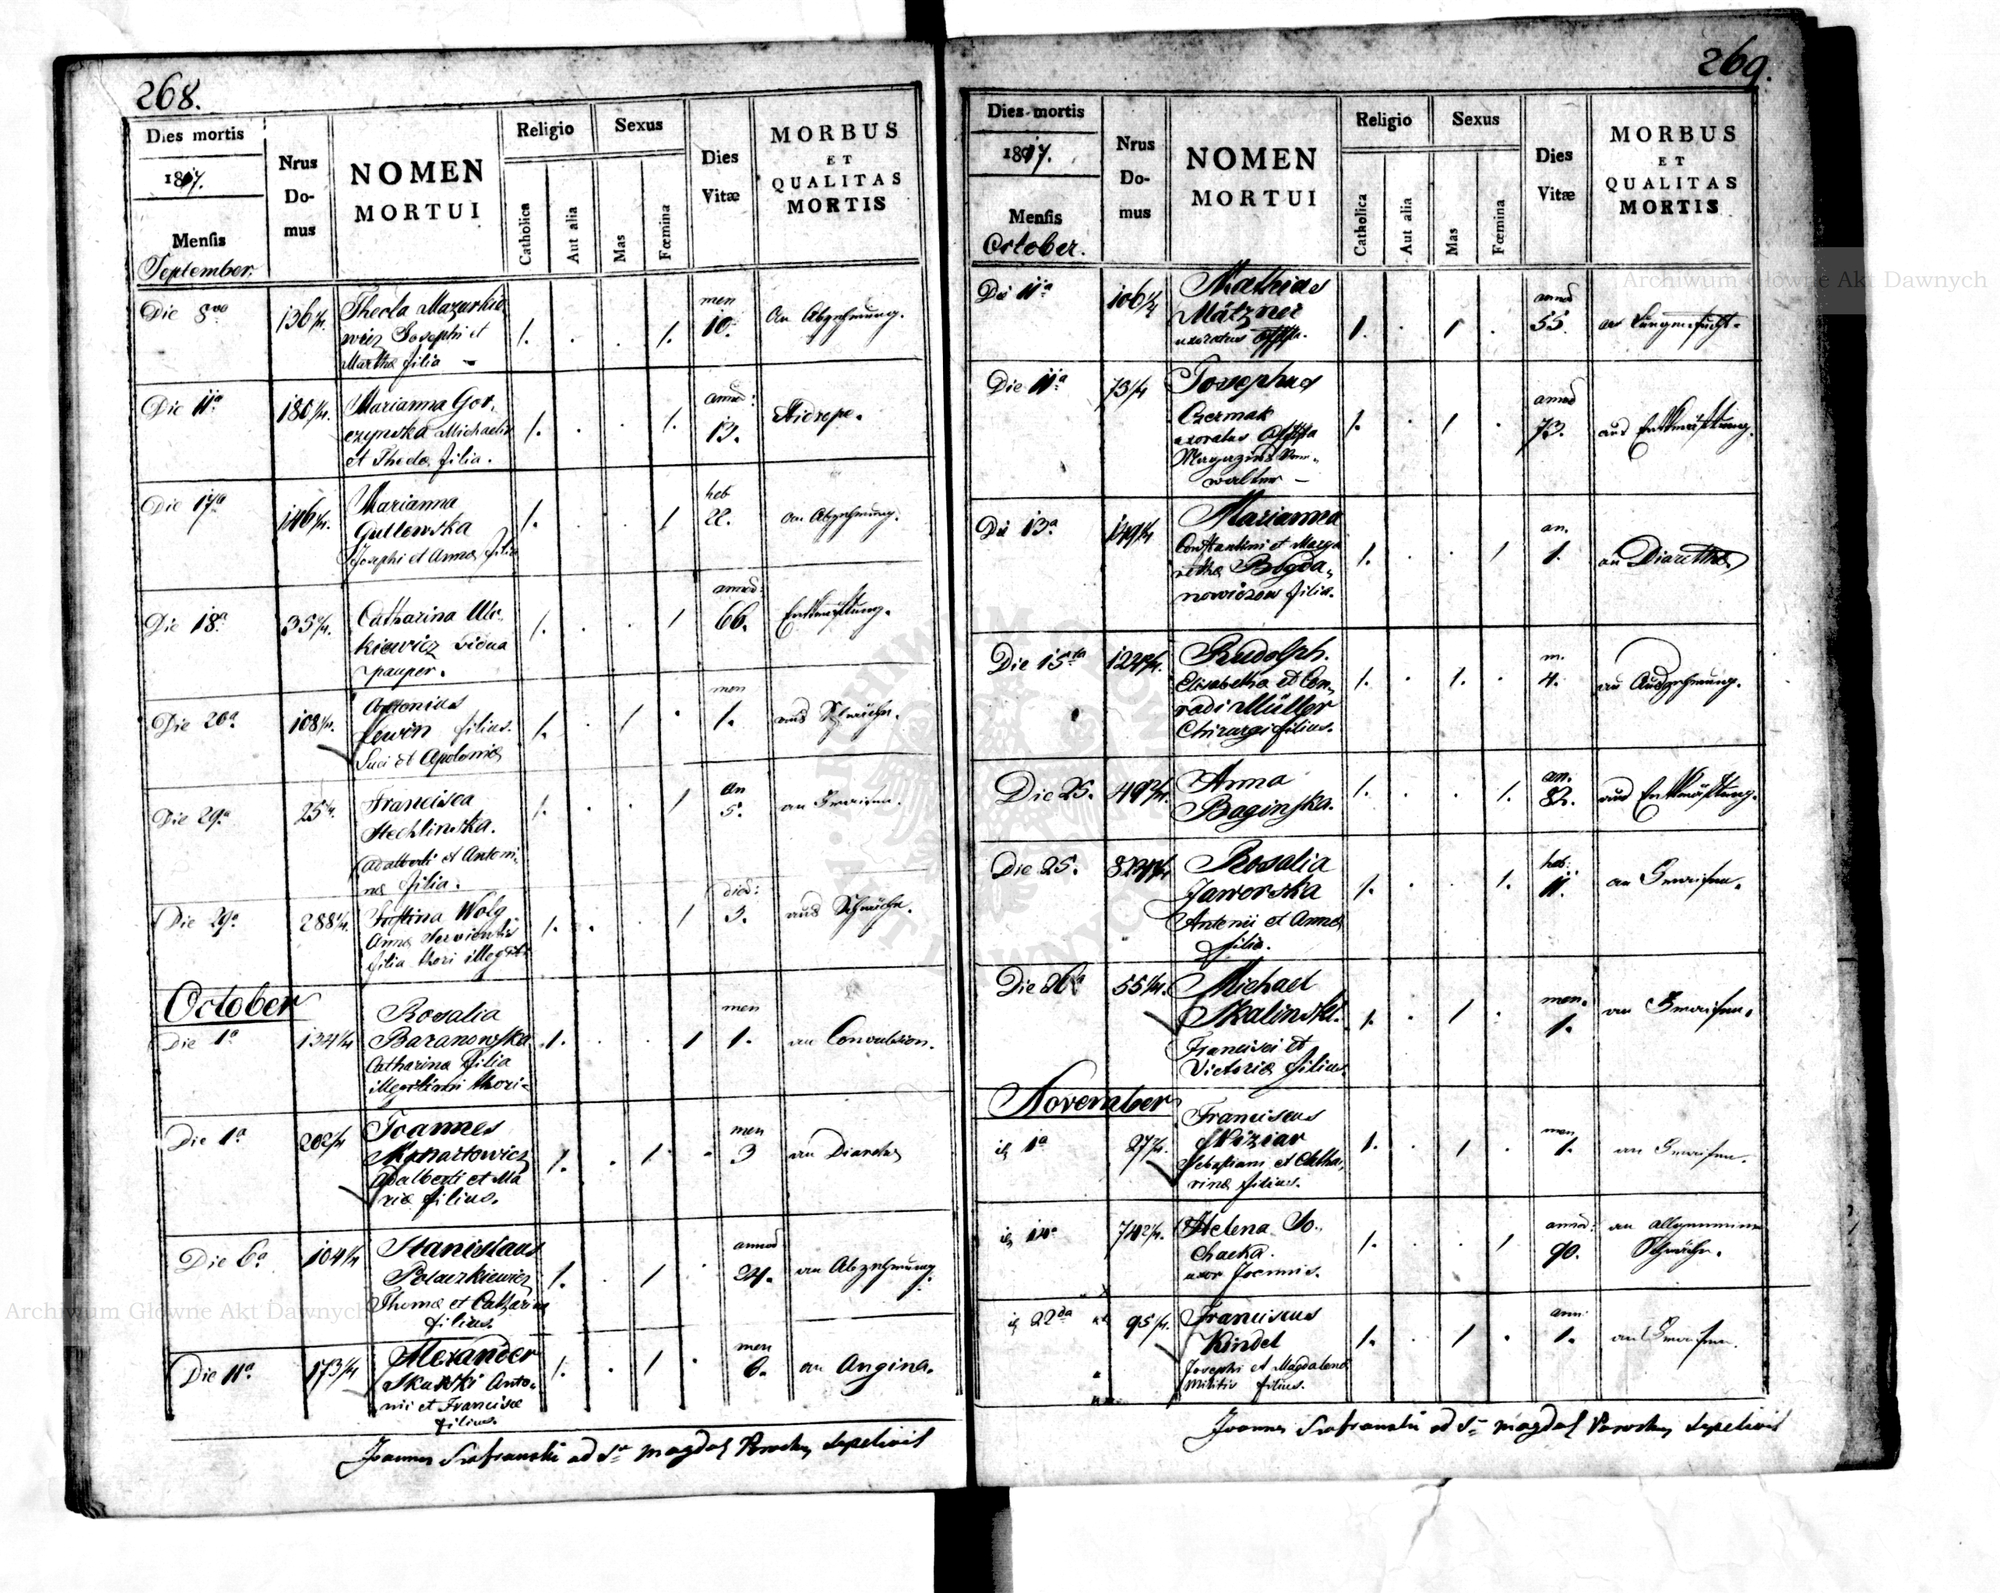 268.
Dies mortis
1817.
Mensis
September.
Nrus
Do-
mus
NOMEN
MORTUI
Religio
Catholica
Aut alia
Sexus
Mas
Fœmina
Dies
Vitæ
MORBUS
ET
QUALITAS
MORTIS
Die 8va 136/4. Thecla Mazurkie
wicz Josephi et
Marthæ filia 1. . . 1. men 10. an Abzehrung.
Die 11a 180/4. Marianna Gor,
czynska Michaelis
et Theclæ filia. 1. . . 1. annor: 13.
Die 17a 146/4. Marianna
Gullowska
Josephi et Annæ filia 1. . . 1 heb 22. an Abzehrung.
Die 18a 35/4. Catharina
kiewicz vidua
pauper. 1. . . 1 annor: 66. Entkräftung.
Die 20a 108/4. Antonius
Lewin filius.
Luci et Apoloniæ 1. . 1 . men 1. aus Schwäche.
Die 29a 25/4. Francisca
Stechlinska.
Adalberti et Antoni,
næ filia. 1. . . 1 an 5.
Die 29a 288/4. Justina Wolg
Annæ Servientis
filia thori illegit: 1. . . 1 dies: 3. aus Schwäche.
October
Die 1a 134/4 Rosalia
Baranowska
Catharinæ filia
illegitimi thori 1. . . 1 men 1. an Convulsion.
Die 1a 202/4 Joannes
Adalberti et Ma
riæ filius. 1. . 1 . men 3 an Diarrhæ
Die 6a 104/4 Stanislaus
Polaczkiewicz
Thomæ et Catharinæ
filius 1. . 1 annor 24. an Abzehrung.
Die 11a 173/4 Alexander
Skarski Anto,
nii et Franciscæ
filius 1. . 1 . men 6. an Angina.
Joannes Szafranski ad St Magdal Parochus Sepelivit
269.
Dies mortis
1817.
Mensis
October.
Nrus
Do-
mus
NOMEN
MORTUI
Religio
Catholica
Aut alia
Sexus
Mas
Fœmina
Dies
Vitæ
MORBUS
ET
QUALITAS
MORTIS
Die 11a 106/4 Mathias
Mätzner
uxoratus 1. . 1 . annor 55. an Lungensucht.
Die 11a 73/4 Josephus
Czermak
uxoratus
Magazins Ver,
walter 1. . 1 . annor 73. aus Entkräftung.
Die 13a 149/4 Marianna
Constantini et Marga
rethæ Bogda,
nowiczow filia. 1. . . 1 an. 1. an Diarrthæ
Die 15ta Rudolph.
Elisabetha et Con,
radi Müller
Chirurgi filius. 1. . 1. . m. 4. an Auszehrung.
Die 25. Anna
Baginska. 1. . . 1. an. 82. aus Entkräftung.
Die 25. Rosalia
Jaworska
Antonii et Annæ
filia. 1. . . 1. heb: 11.
Die 26a 55/4. Michael
Skalinski.
Francisci et
Victoriæ filius. 1. . 1 . men. 1.
November
1a 27/4. Franciscus
Sebastiani et Catha,
rinæ filius. 1. . 1 . men 1.
742/4. Helena So,
chacka.
uxor Joannis. 1. . . 1 annor: 90. an allgemeiner
Schwäche.
22da 95/4. Franciscus
Kindel
Josephi et Magdalenæ
militis filius. 1. . 1 . ann: 1.
Joannes Szafranski ad St Magdal Parochus Sepelivit
Archiwum Główne Akt Dawnych
Archiwum Główne Akt Dawnych
ARCHIWUM GŁÓWNE AKT DAWNYCH